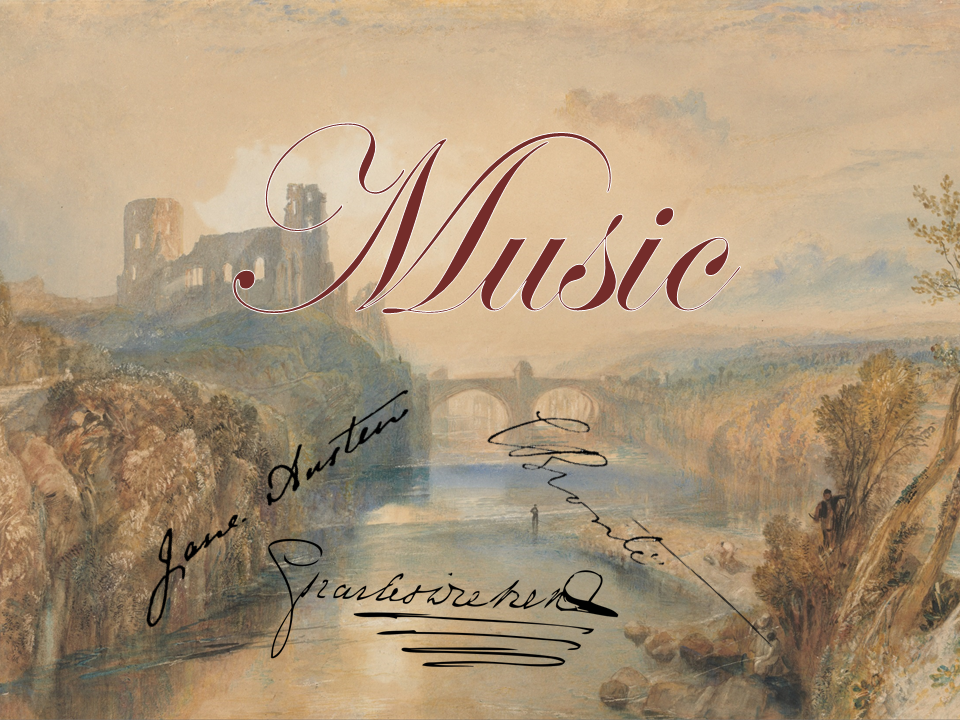 Music
Jane. Austen
CBrontë
Charles Dickens